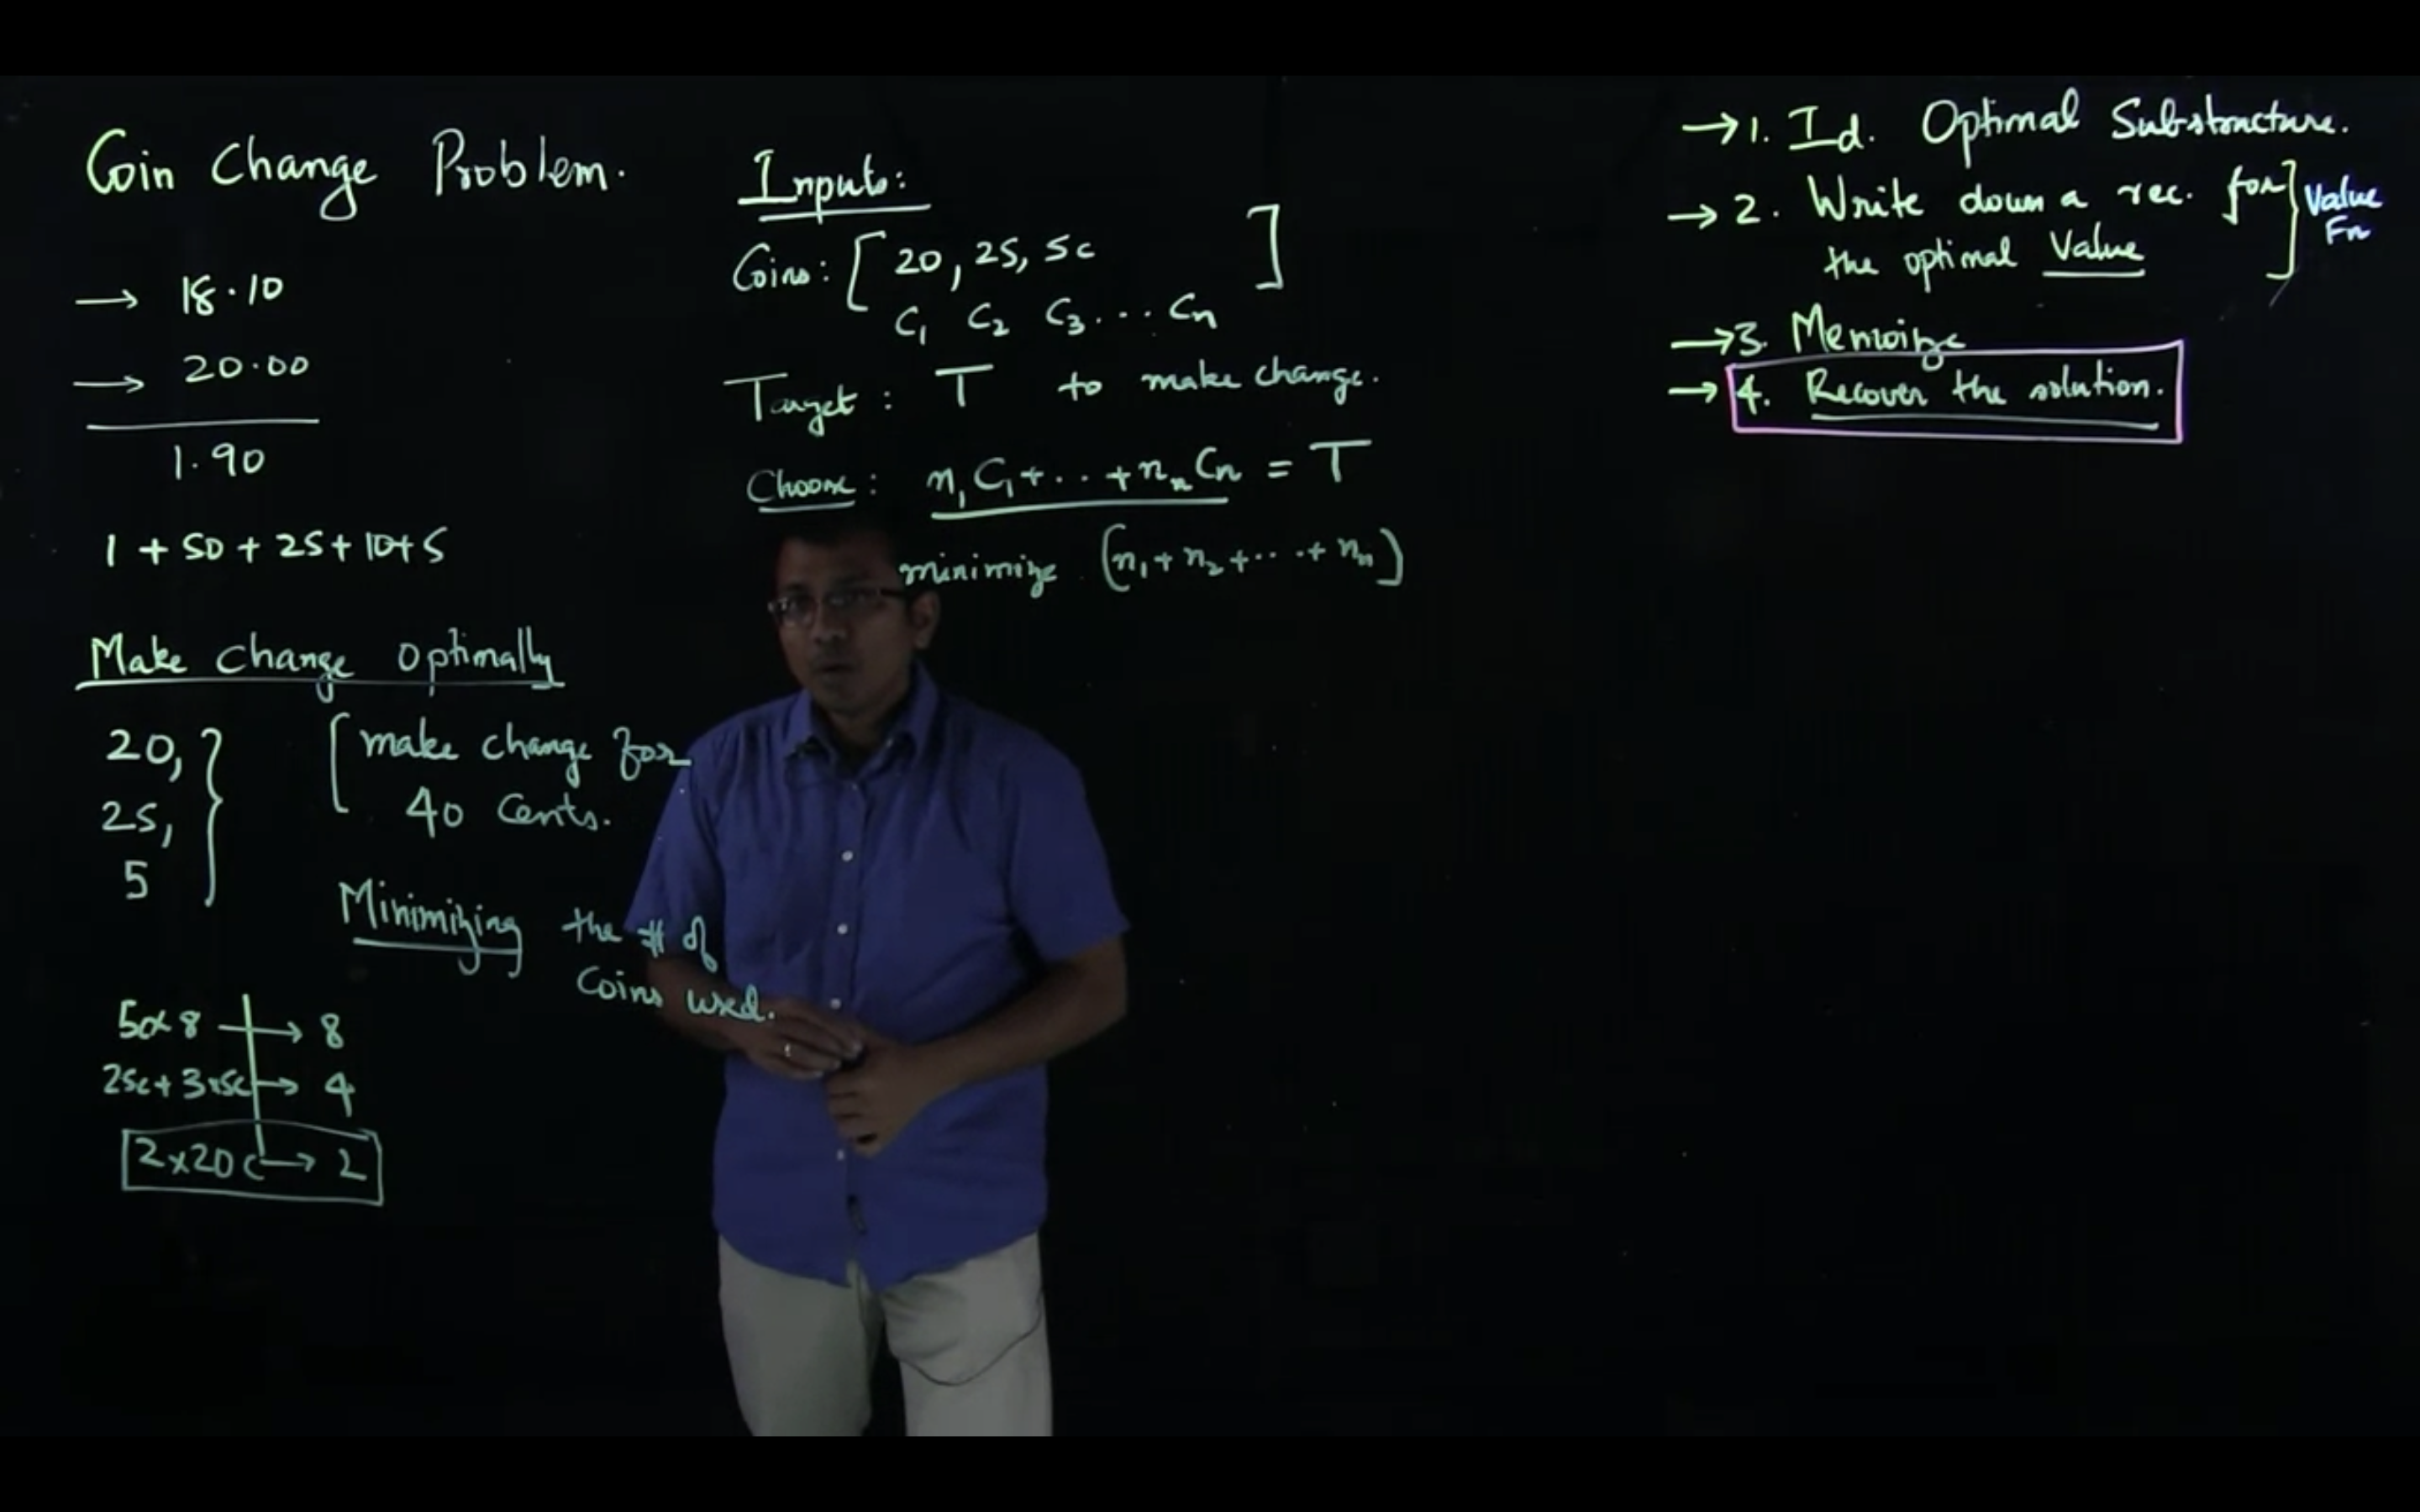 Coin Change Problem.
→ 18.10
→ 20.00
1.90
1 + 50 + 25 + 10 + 5
Make change optimally
20,
25,
5
[make change for
40 Cents.
Minimizing the # of
Coins used.
5c x 8 → 8
25c + 3x5c → 4
2x20c → 2
Inputs:
Coins: [20, 25, 5c ]
C₁ C₂ C₃ ... Cn
Target: T to make change.
Choose: n₁C₁ + .. + nₙCₙ = T
minimize (n₁ + n₂ + ... + nₙ)
→ 1. Id. Optimal Substructure.
→ 2. Write down a rec. for
the optimal Value
] Value
Fn
→ 3. Memoize
→ 4. Recover the solution.